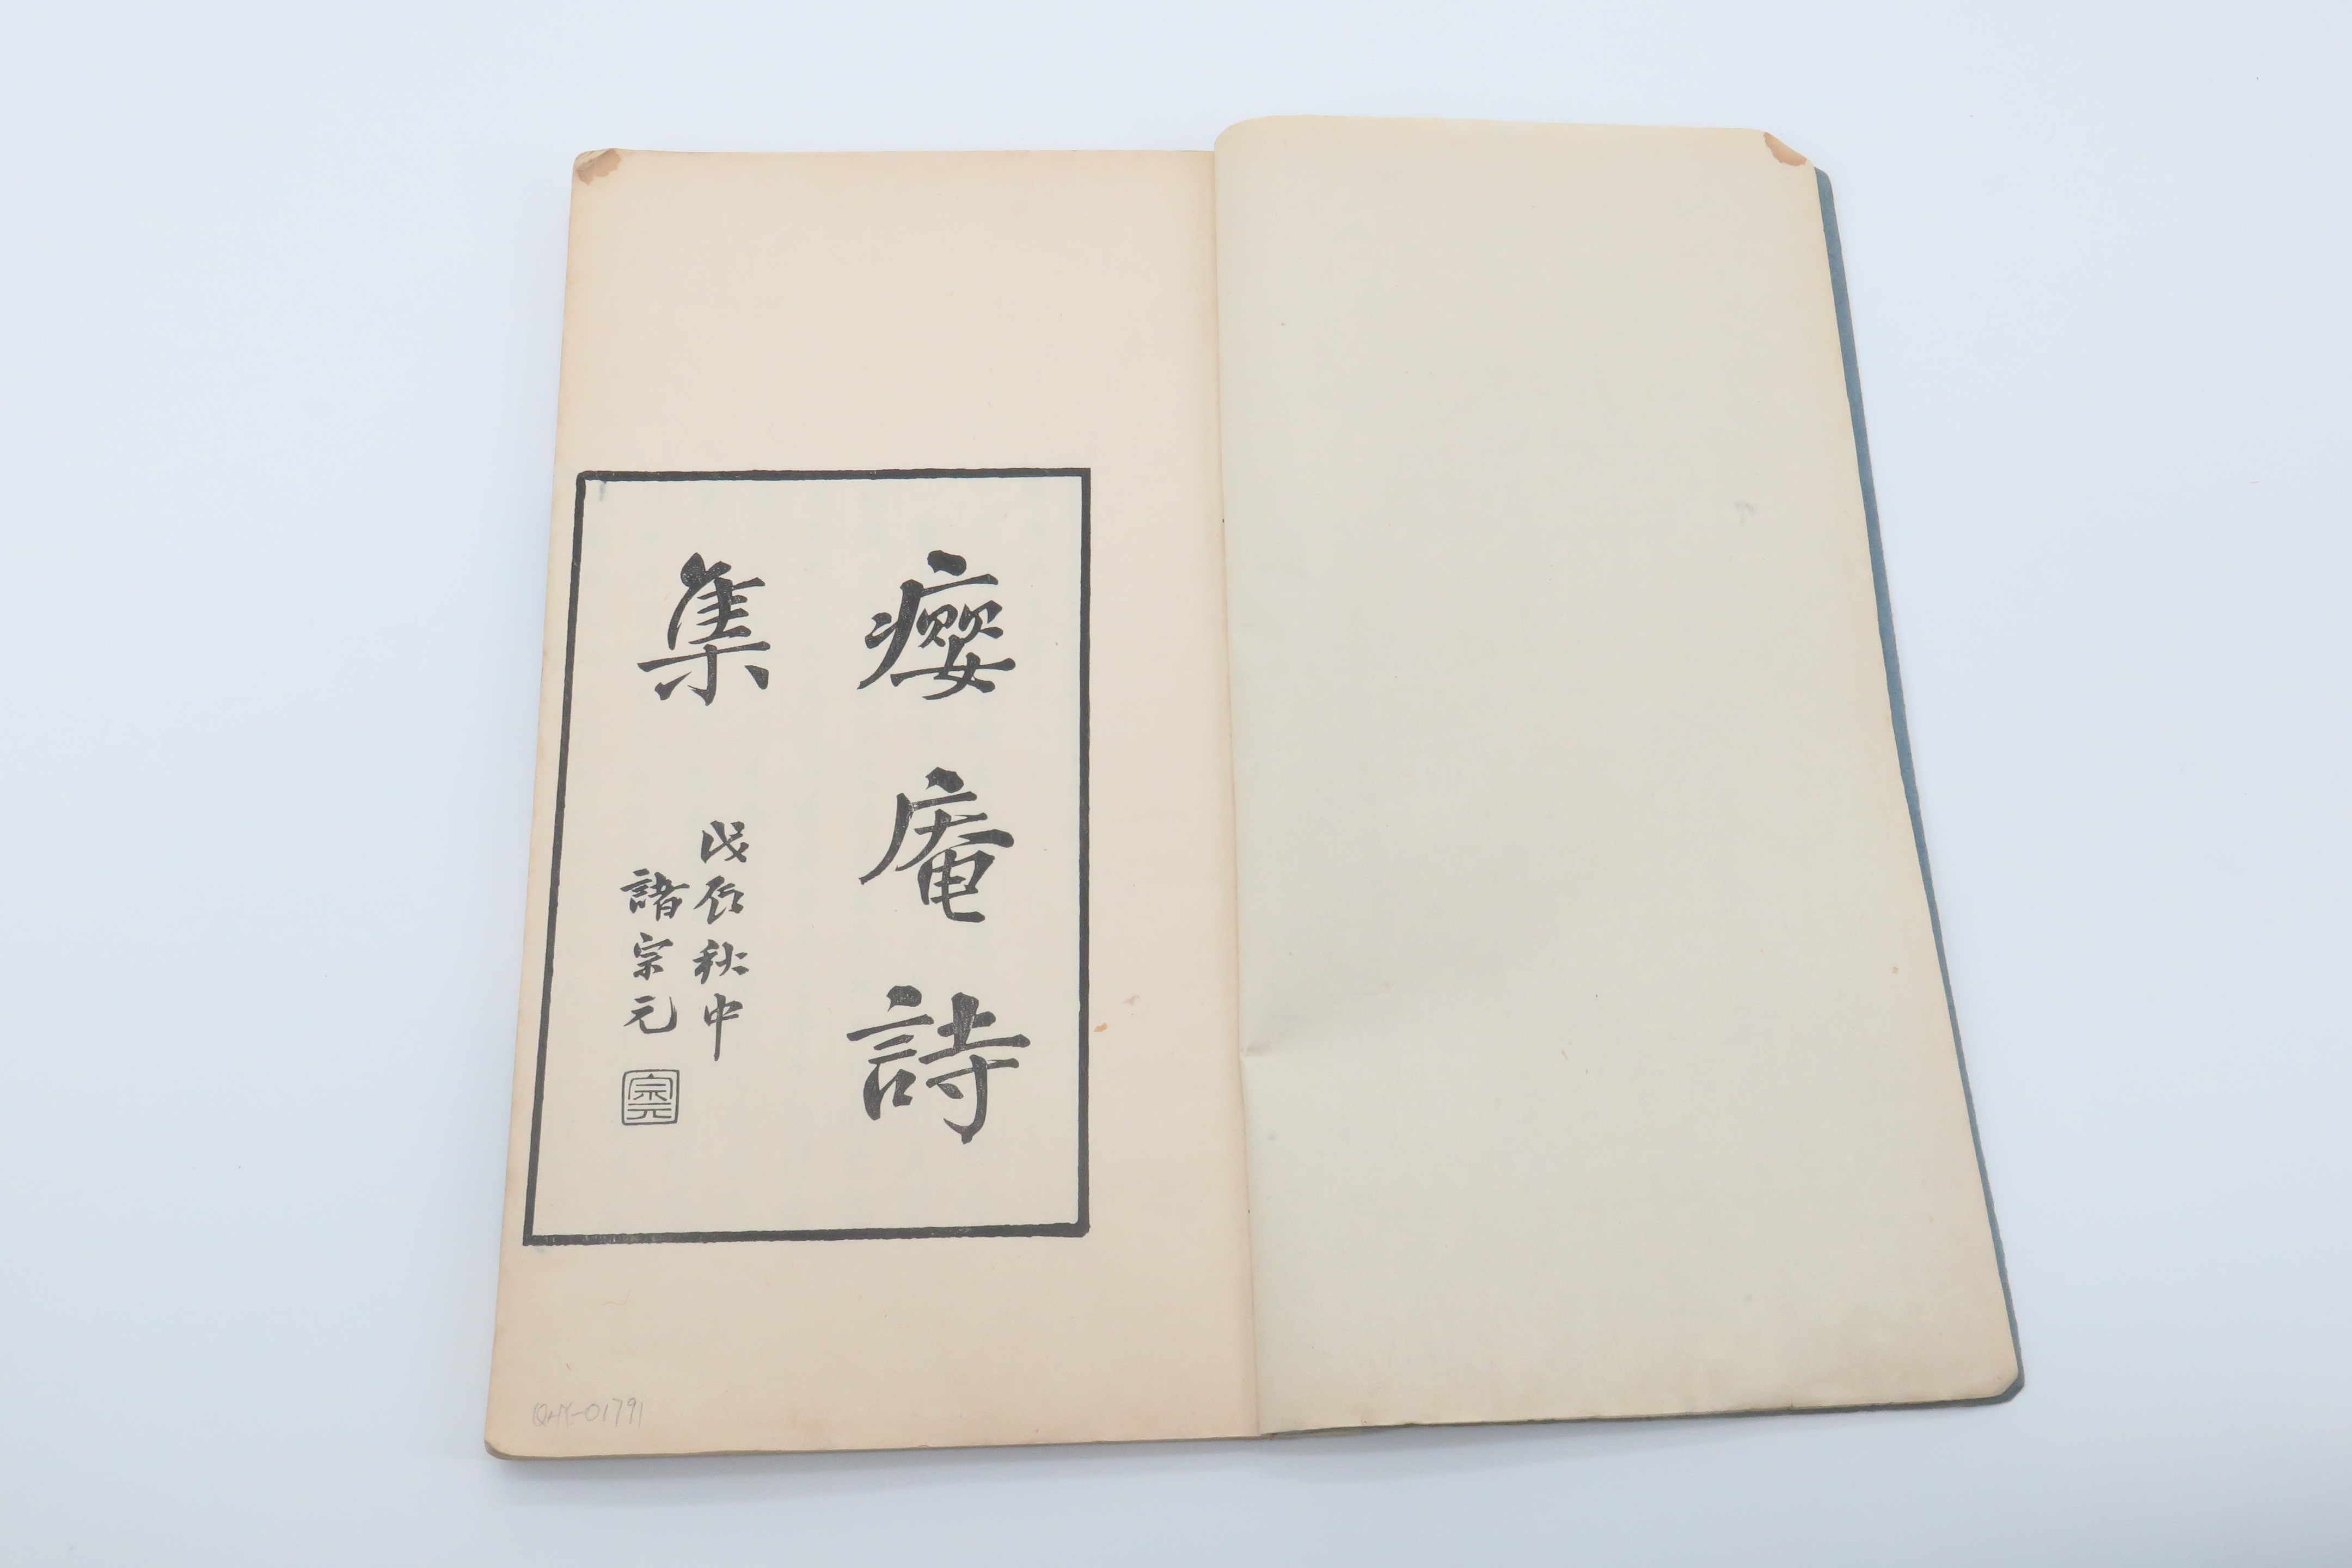 癭庵詩
集
戊辰秋中
諸宗元
宗元
QHX-01791